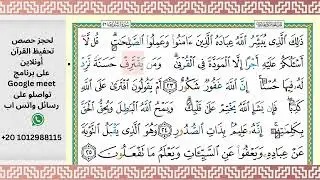 ذَٰلِكَ ٱلَّذِى يُبَشِّرُ ٱللَّهُ عِبَادَهُ ٱلَّذِينَ ءَامَنُوا۟ وَعَمِلُوا۟ ٱلصَّٰلِحَٰتِ ۗ قُل لَّآ
أَسْـَٔلُكُمْ عَلَيْهِ أَجْرًا إِلَّا ٱلْمَوَدَّةَ فِى ٱلْقُرْبَىٰ ۗ وَمَن يَقْتَرِفْ حَسَنَةً نَّزِدْ
لَهُۥ فِيهَا حُسْنًا ۚ إِنَّ ٱللَّهَ غَفُورٌ شَكُورٌ ٢٣ أَمْ يَقُولُونَ ٱفْتَرَىٰ عَلَى ٱللَّهِ
كَذِبًا ۖ فَإِن يَشَإِ ٱللَّهُ يَخْتِمْ عَلَىٰ قَلْبِكَ ۗ وَيَمْحُ ٱللَّهُ ٱلْبَٰطِلَ وَيُحِقُّ ٱلْحَقَّ
بِكَلِمَٰتِهِۦٓ ۚ إِنَّهُۥ عَلِيمٌۢ بِذَاتِ ٱلصُّدُورِ ٢٤ وَهُوَ ٱلَّذِى يَقْبَلُ ٱلتَّوْبَةَ
عَنْ عِبَادِهِۦ وَيَعْفُوا۟ عَنِ ٱلسَّيِّـَٔاتِ وَيَعْلَمُ مَا تَفْعَلُونَ ٢٥
لحجز حصص
تحفيظ القرآن
أونلاين
على برنامج
Google meet
تواصلو على
رسائل واتس اب
+20 1012988115